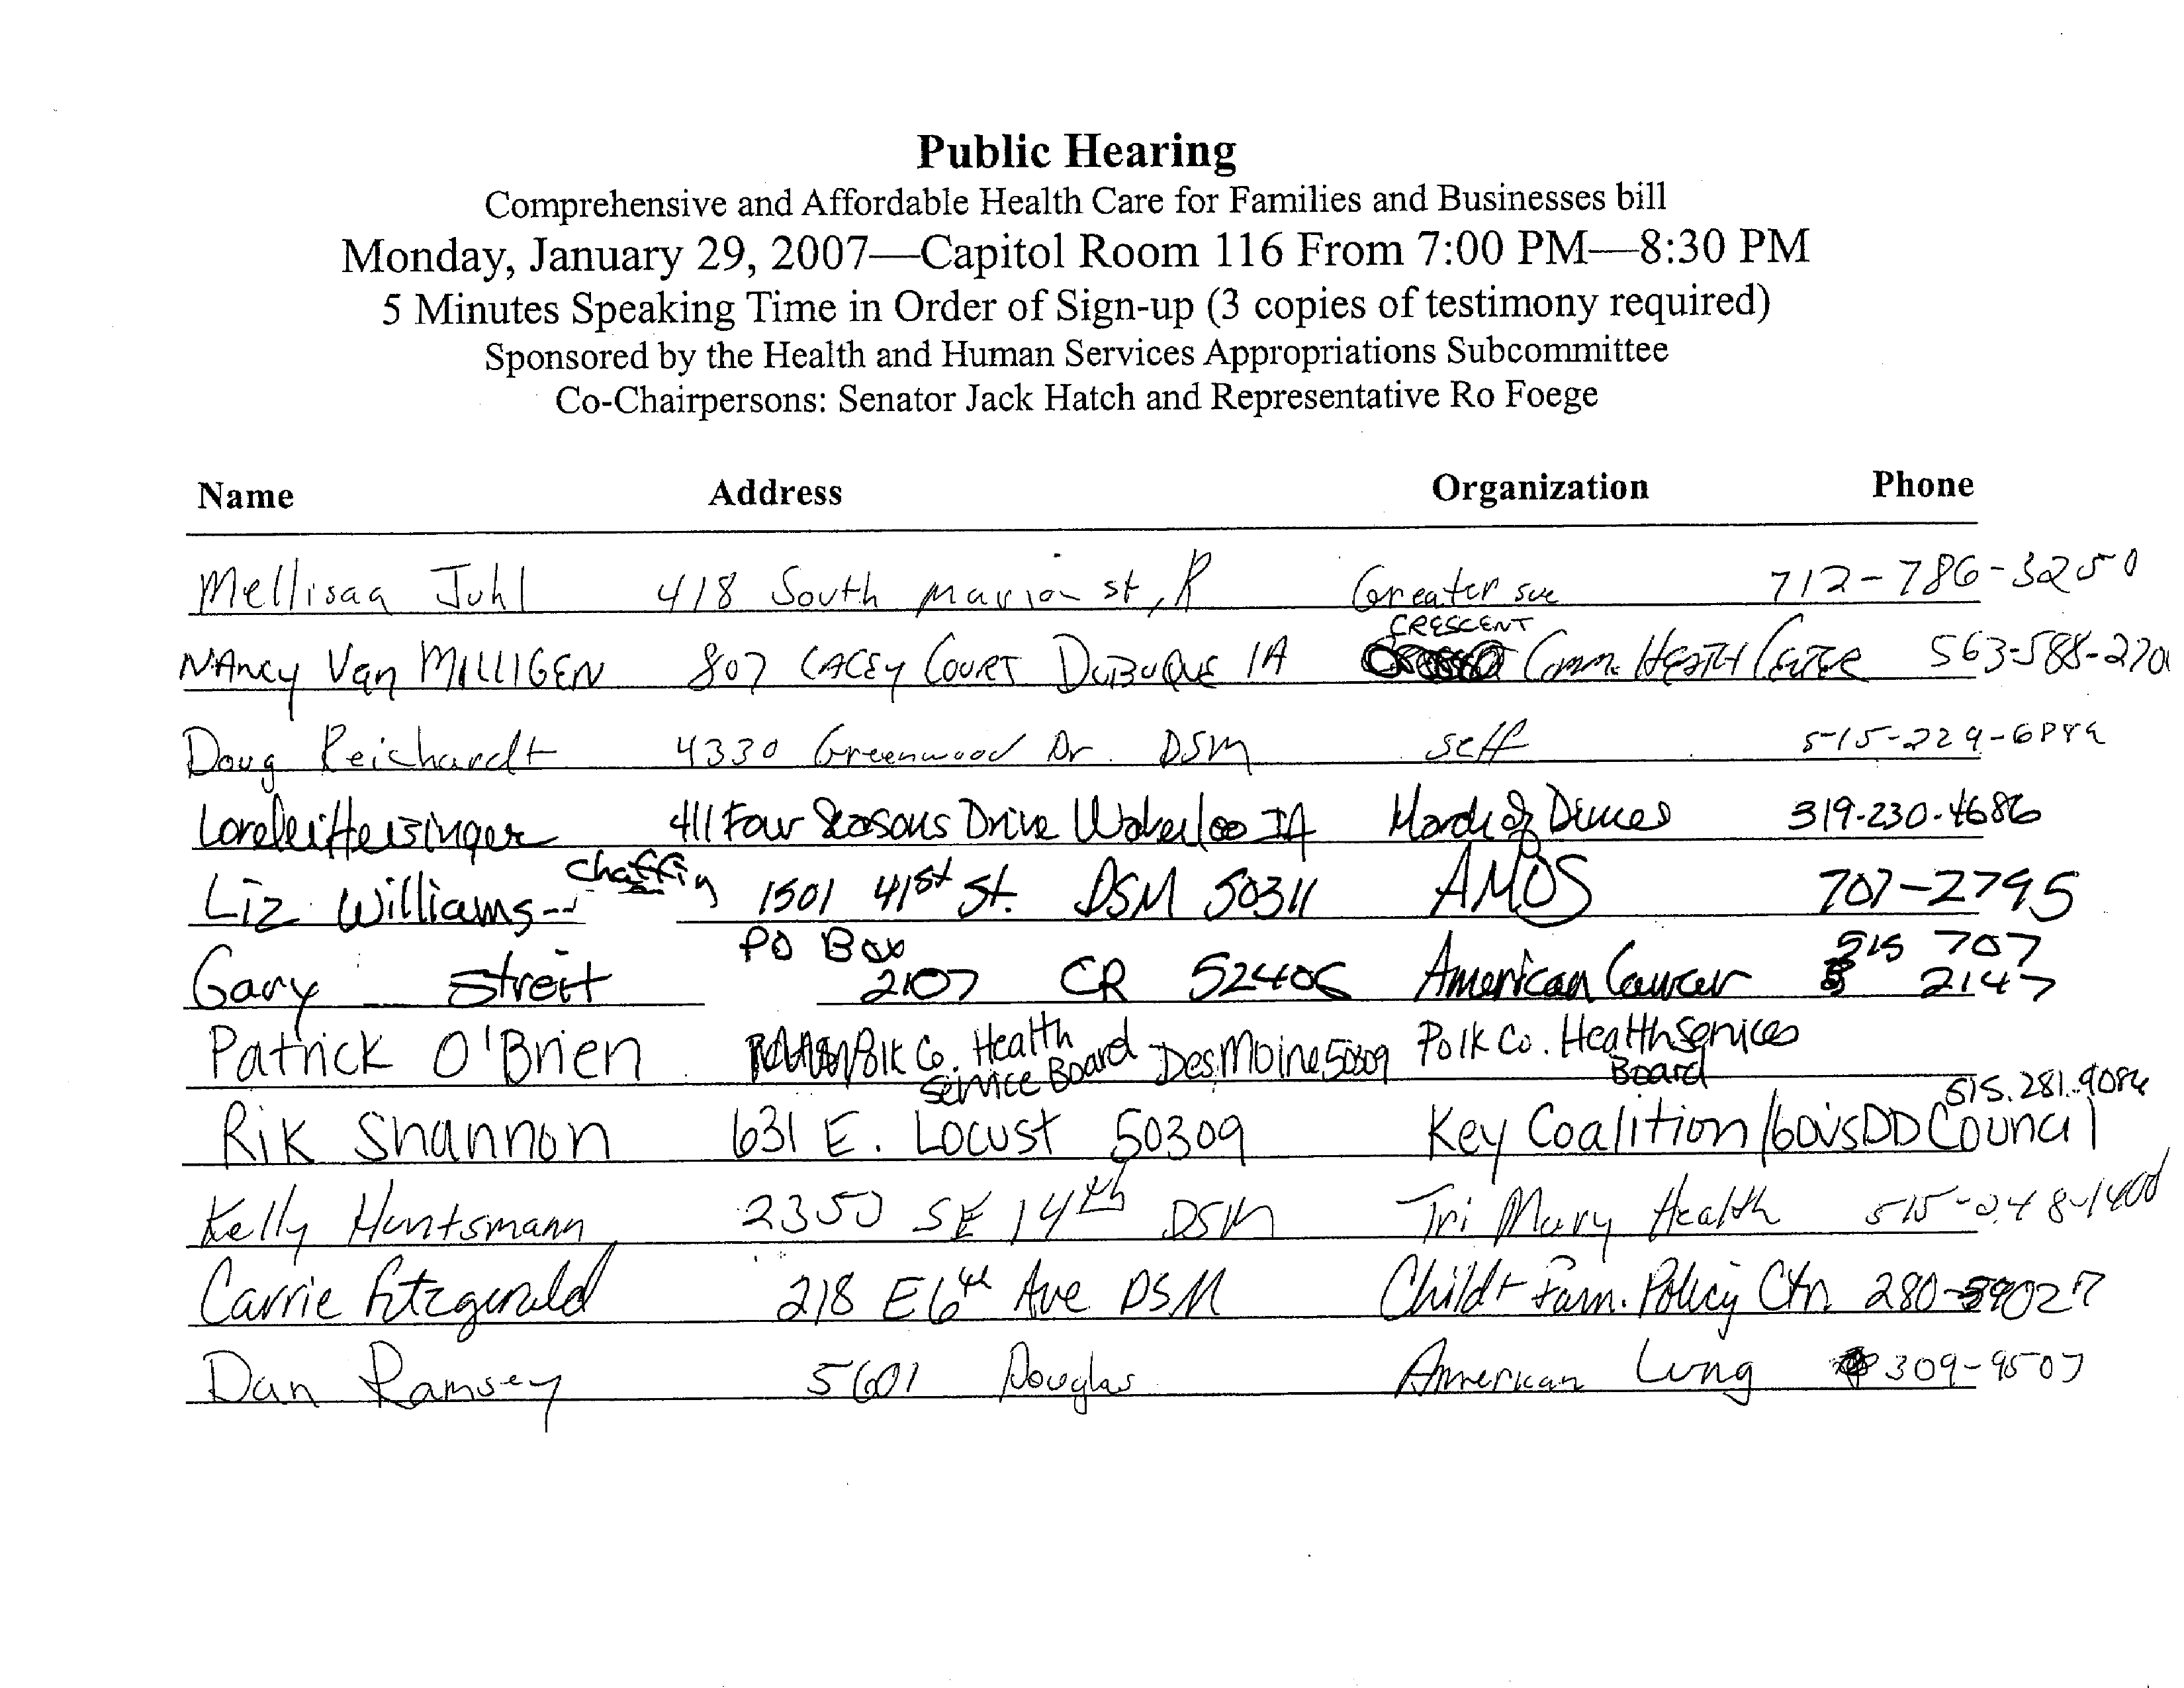 Public Hearing
Comprehensive and Affordable Health Care for Families and Businesses bill
Monday, January 29, 2007—Capitol Room 116 From 7:00 PM—8:30 PM
5 Minutes Speaking Time in Order of Sign-up (3 copies of testimony required)
Sponsored by the Health and Human Services Appropriations Subcommittee
Co-Chairpersons: Senator Jack Hatch and Representative Ro Foege
Name Address Organization Phone
Mellisaa Juhl 418 South Marion st, R Greater 712-786-3250
NAncy Van MILLIGEN 807 CACEy COURT DUBUQUE IA CRESCENT Comm. HEALTH CENTER 563-588-270
Doug Reichardt 4330 Greenwood Dr. DSM self 515-229-
Lorelei Heisinger 411 Four Seasons Drive Waterloo IA March of Dimes 319-230-4686
Liz Williams-- Chaffin 1501 41st St. DSM 50311 AMOS 707-2795
Gary Streit PO Box 2107 CR 52406 American Cancer 515 707 2147
Patrick O'Brien Polk Co. Health Service Board Des Moine 50309 Polk Co. Health Services Board
Rik Shannon 631 E. Locust 50309 Key Coalition/Gov's DD Council 515.281.9084
Kelly Huntsmann 2353 SE 14th DSM Tri Mary Health 515-248-1400
Carrie Fitzgerald 218 E 6th Ave DSM Child + Fam. Policy Ctr. 280-9027
Dan Ramsey 5601 Douglas American Lung 309-9507